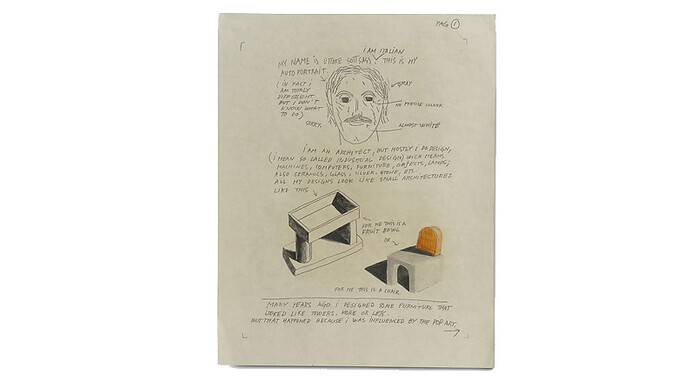 PAG 1
I AM ITALIAN
MY NAME IS ETTORE SOTTSASS THIS IS MY
AUTO PORTRAIT.
(IN FACT I
AM TOTALY
DIFFERENT
BUT I DON'T
KNOW WHAT
TO DO)
SORRY.
GRAY
NO PRECISE COLOUR
ALMOST WHITE
I AM AN ARCHITECT, BUT MOSTLY I DO DESIGN,
(I MEAN SO CALLED INDUSTRIAL DESIGN) WICH MEANS
MACHINES, COMPUTERS, FURNITURE, OBJECTS, LAMPS;
ALSO CERAMICS, GLASS, SILVER, STONE, ETC.
ALL MY DESIGNS LOOK LIKE SMALL ARCHITECTURES
LIKE THIS
FOR ME THIS IS A
FRUIT
OR
FOR ME THIS IS A CHAIR.
MANY YEARS AGO I DESIGNED SOME FURNITURE THAT
LOOKED LIKE TOWERS. MORE OR LESS.
BUT THAT HAPPENED BECAUSE I WAS INFLUENCED BY THE POP ART.